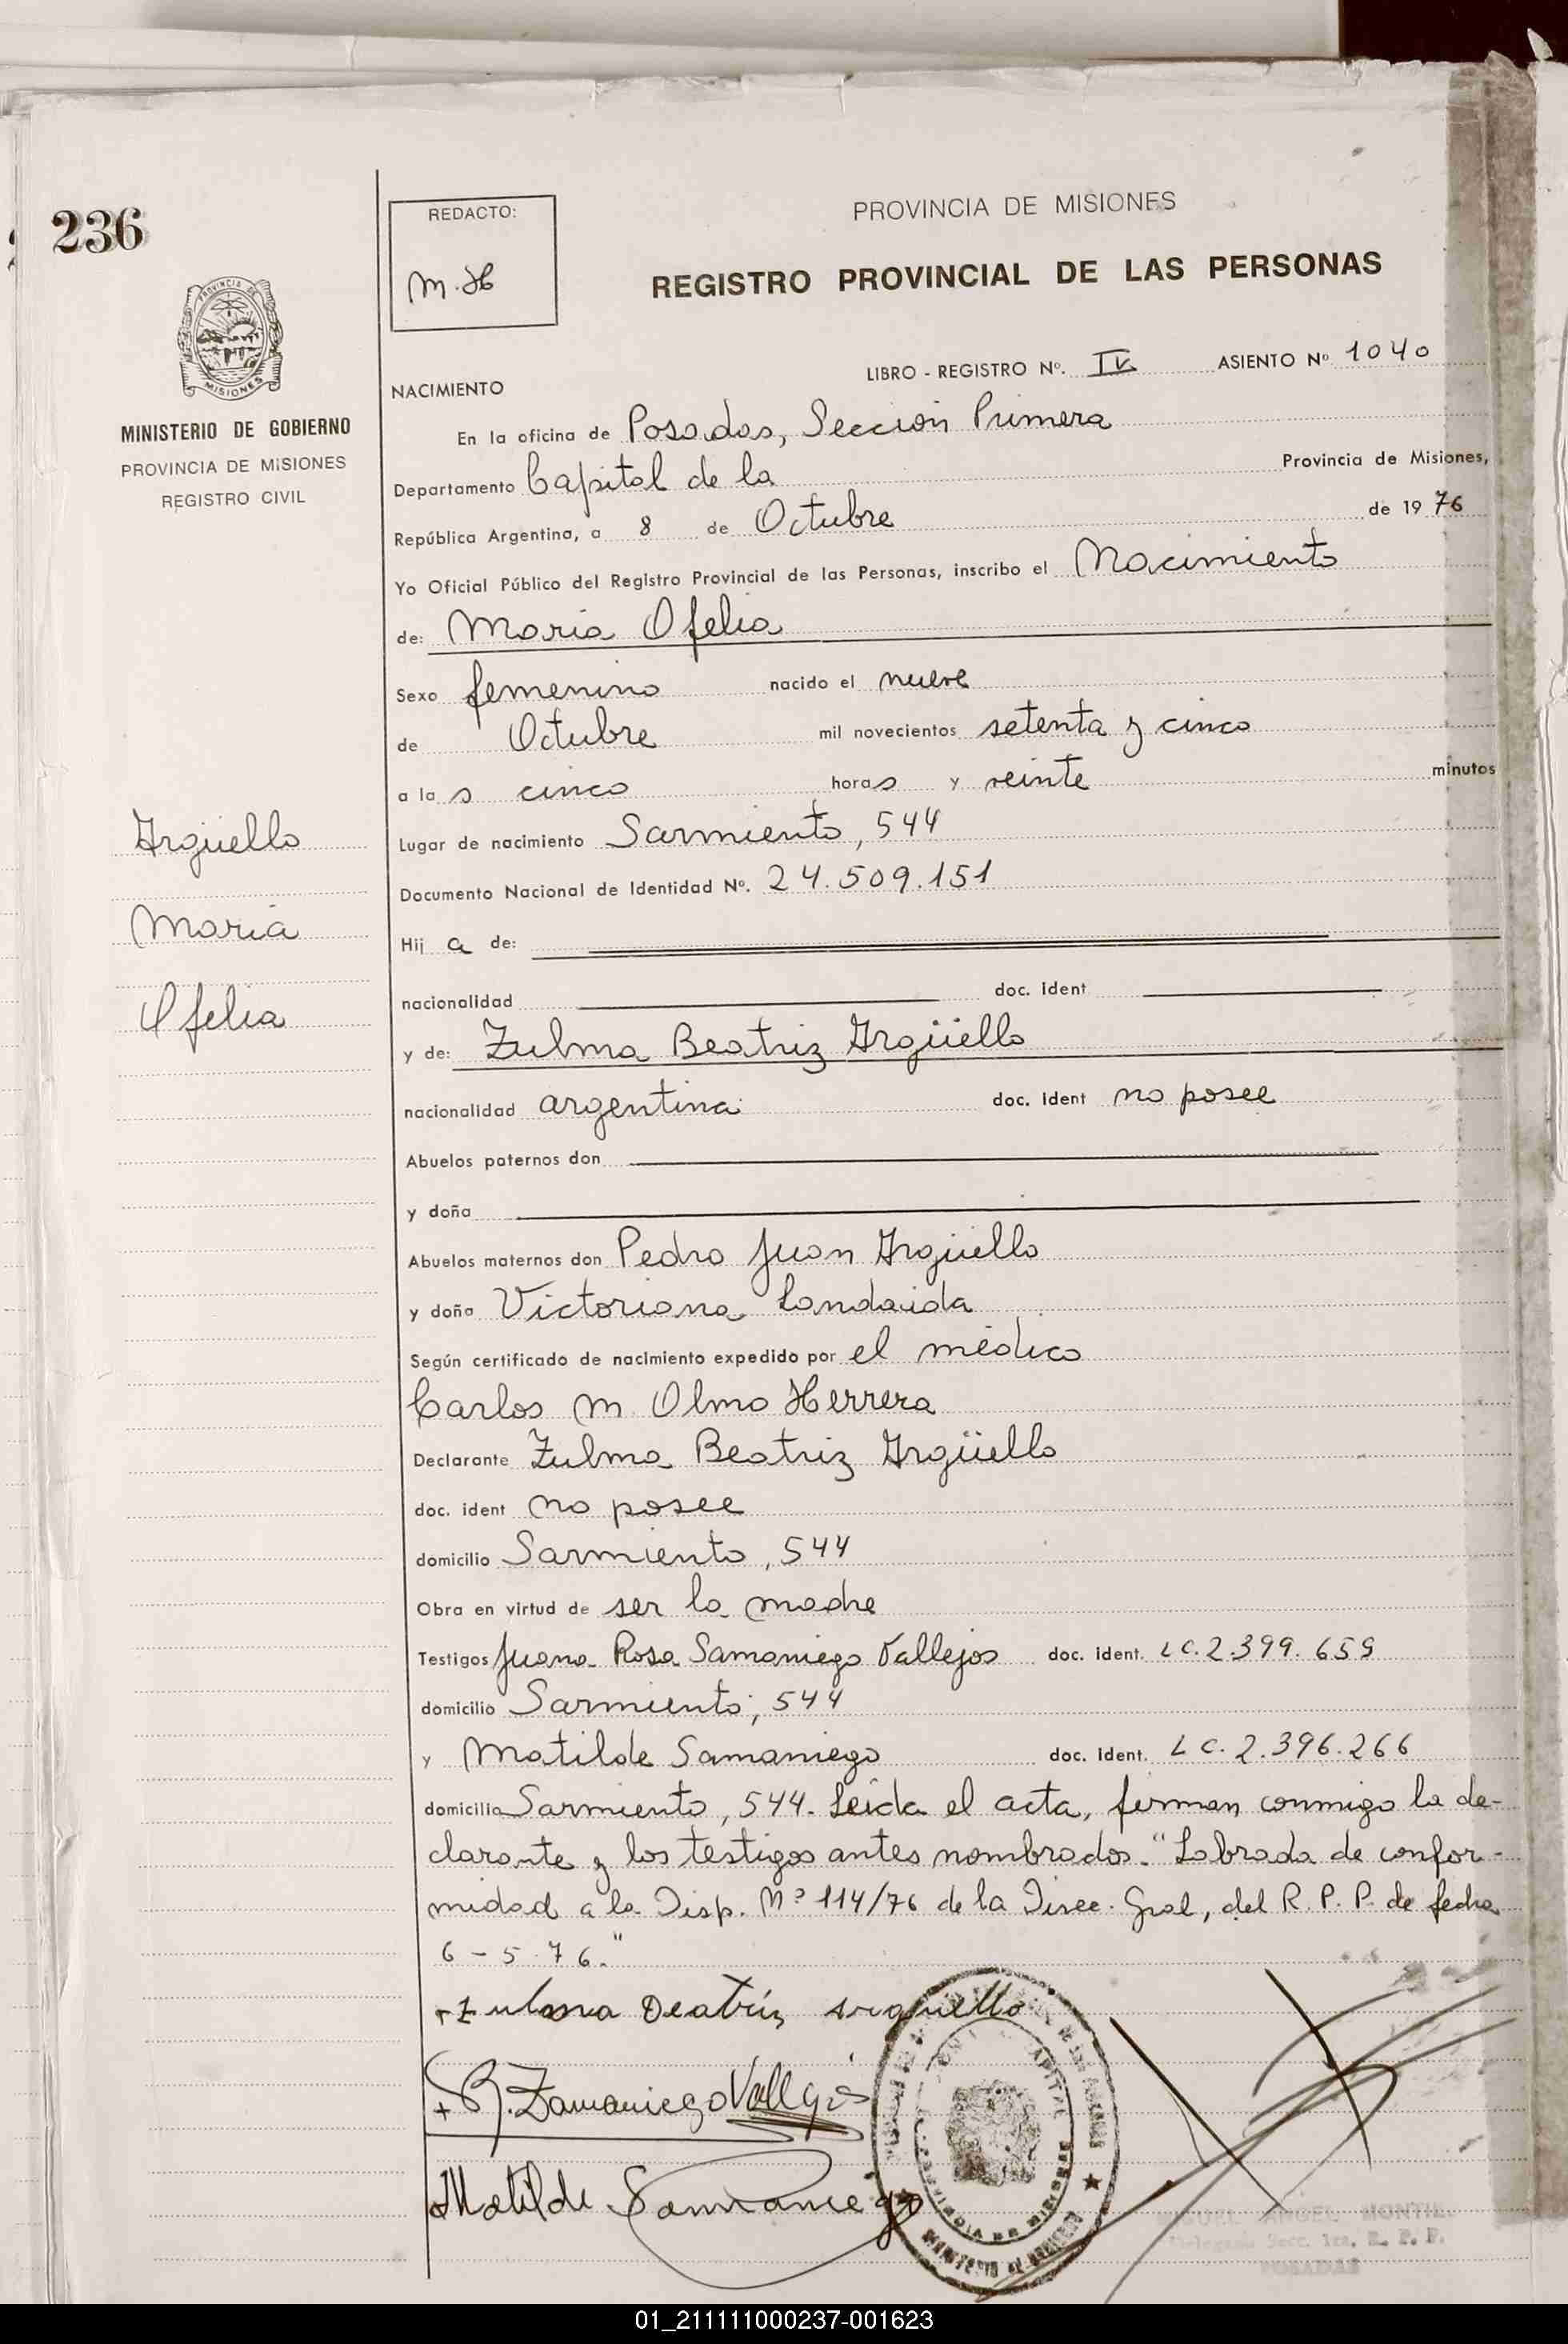 236
REDACTO:
M. H
PROVINCIA DE MISIONES
REGISTRO PROVINCIAL DE LAS PERSONAS
MISIONES
MINISTERIO DE GOBIERNO
PROVINCIA DE MISIONES
REGISTRO CIVIL
LIBRO - REGISTRO Nº. IV ASIENTO Nº 1040
NACIMIENTO
En la oficina de Posadas, Sección Primera
Departamento Capital de la Provincia de Misiones,
República Argentina, a 8 de Octubre de 1976
Yo Oficial Público del Registro Provincial de las Personas, inscribo el Nacimiento
de: María Ofelia
Sexo femenino nacido el nueve
de Octubre mil novecientos setenta y cinco
a las cinco horas y veinte minutos
Argüello
María
Ofelia
Lugar de nacimiento Sarmiento, 544
Documento Nacional de Identidad Nº. 24.509.151
Hij a de:
nacionalidad doc. ident
y de: Zulma Beatriz Argüello
nacionalidad argentina doc. ident no posee
Abuelos paternos don
y doña
Abuelos maternos don Pedro Juan Argüello
y doña Victoriana Landaida
Según certificado de nacimiento expedido por el médico
Carlos M. Olmo Herrera
Declarante Zulma Beatriz Argüello
doc. ident no posee
domicilio Sarmiento, 544
Obra en virtud de ser la madre
Testigos Juana Rosa Samaniego Vallejos doc. ident. LC. 2.399.659
domicilio Sarmiento, 544
y Matilde Samaniego doc. ident. LC. 2.396.266
domicilio Sarmiento, 544. Leída el acta, firman conmigo la de-
clarante y los testigos antes nombrados. "Labrada de confor-
midad a la Disp. Nº 114/76 de la Direc. Gral, del R. P. P. de fecha
6-5-76."
Zulma Beatríz Arguello
R. Zamaniego Vallejos
Matilde Samaniego
MIGUEL ANGEL MONTIEL
Delegado Secc. 1ra. R. P. P.
POSADAS
01_211111000237-001623